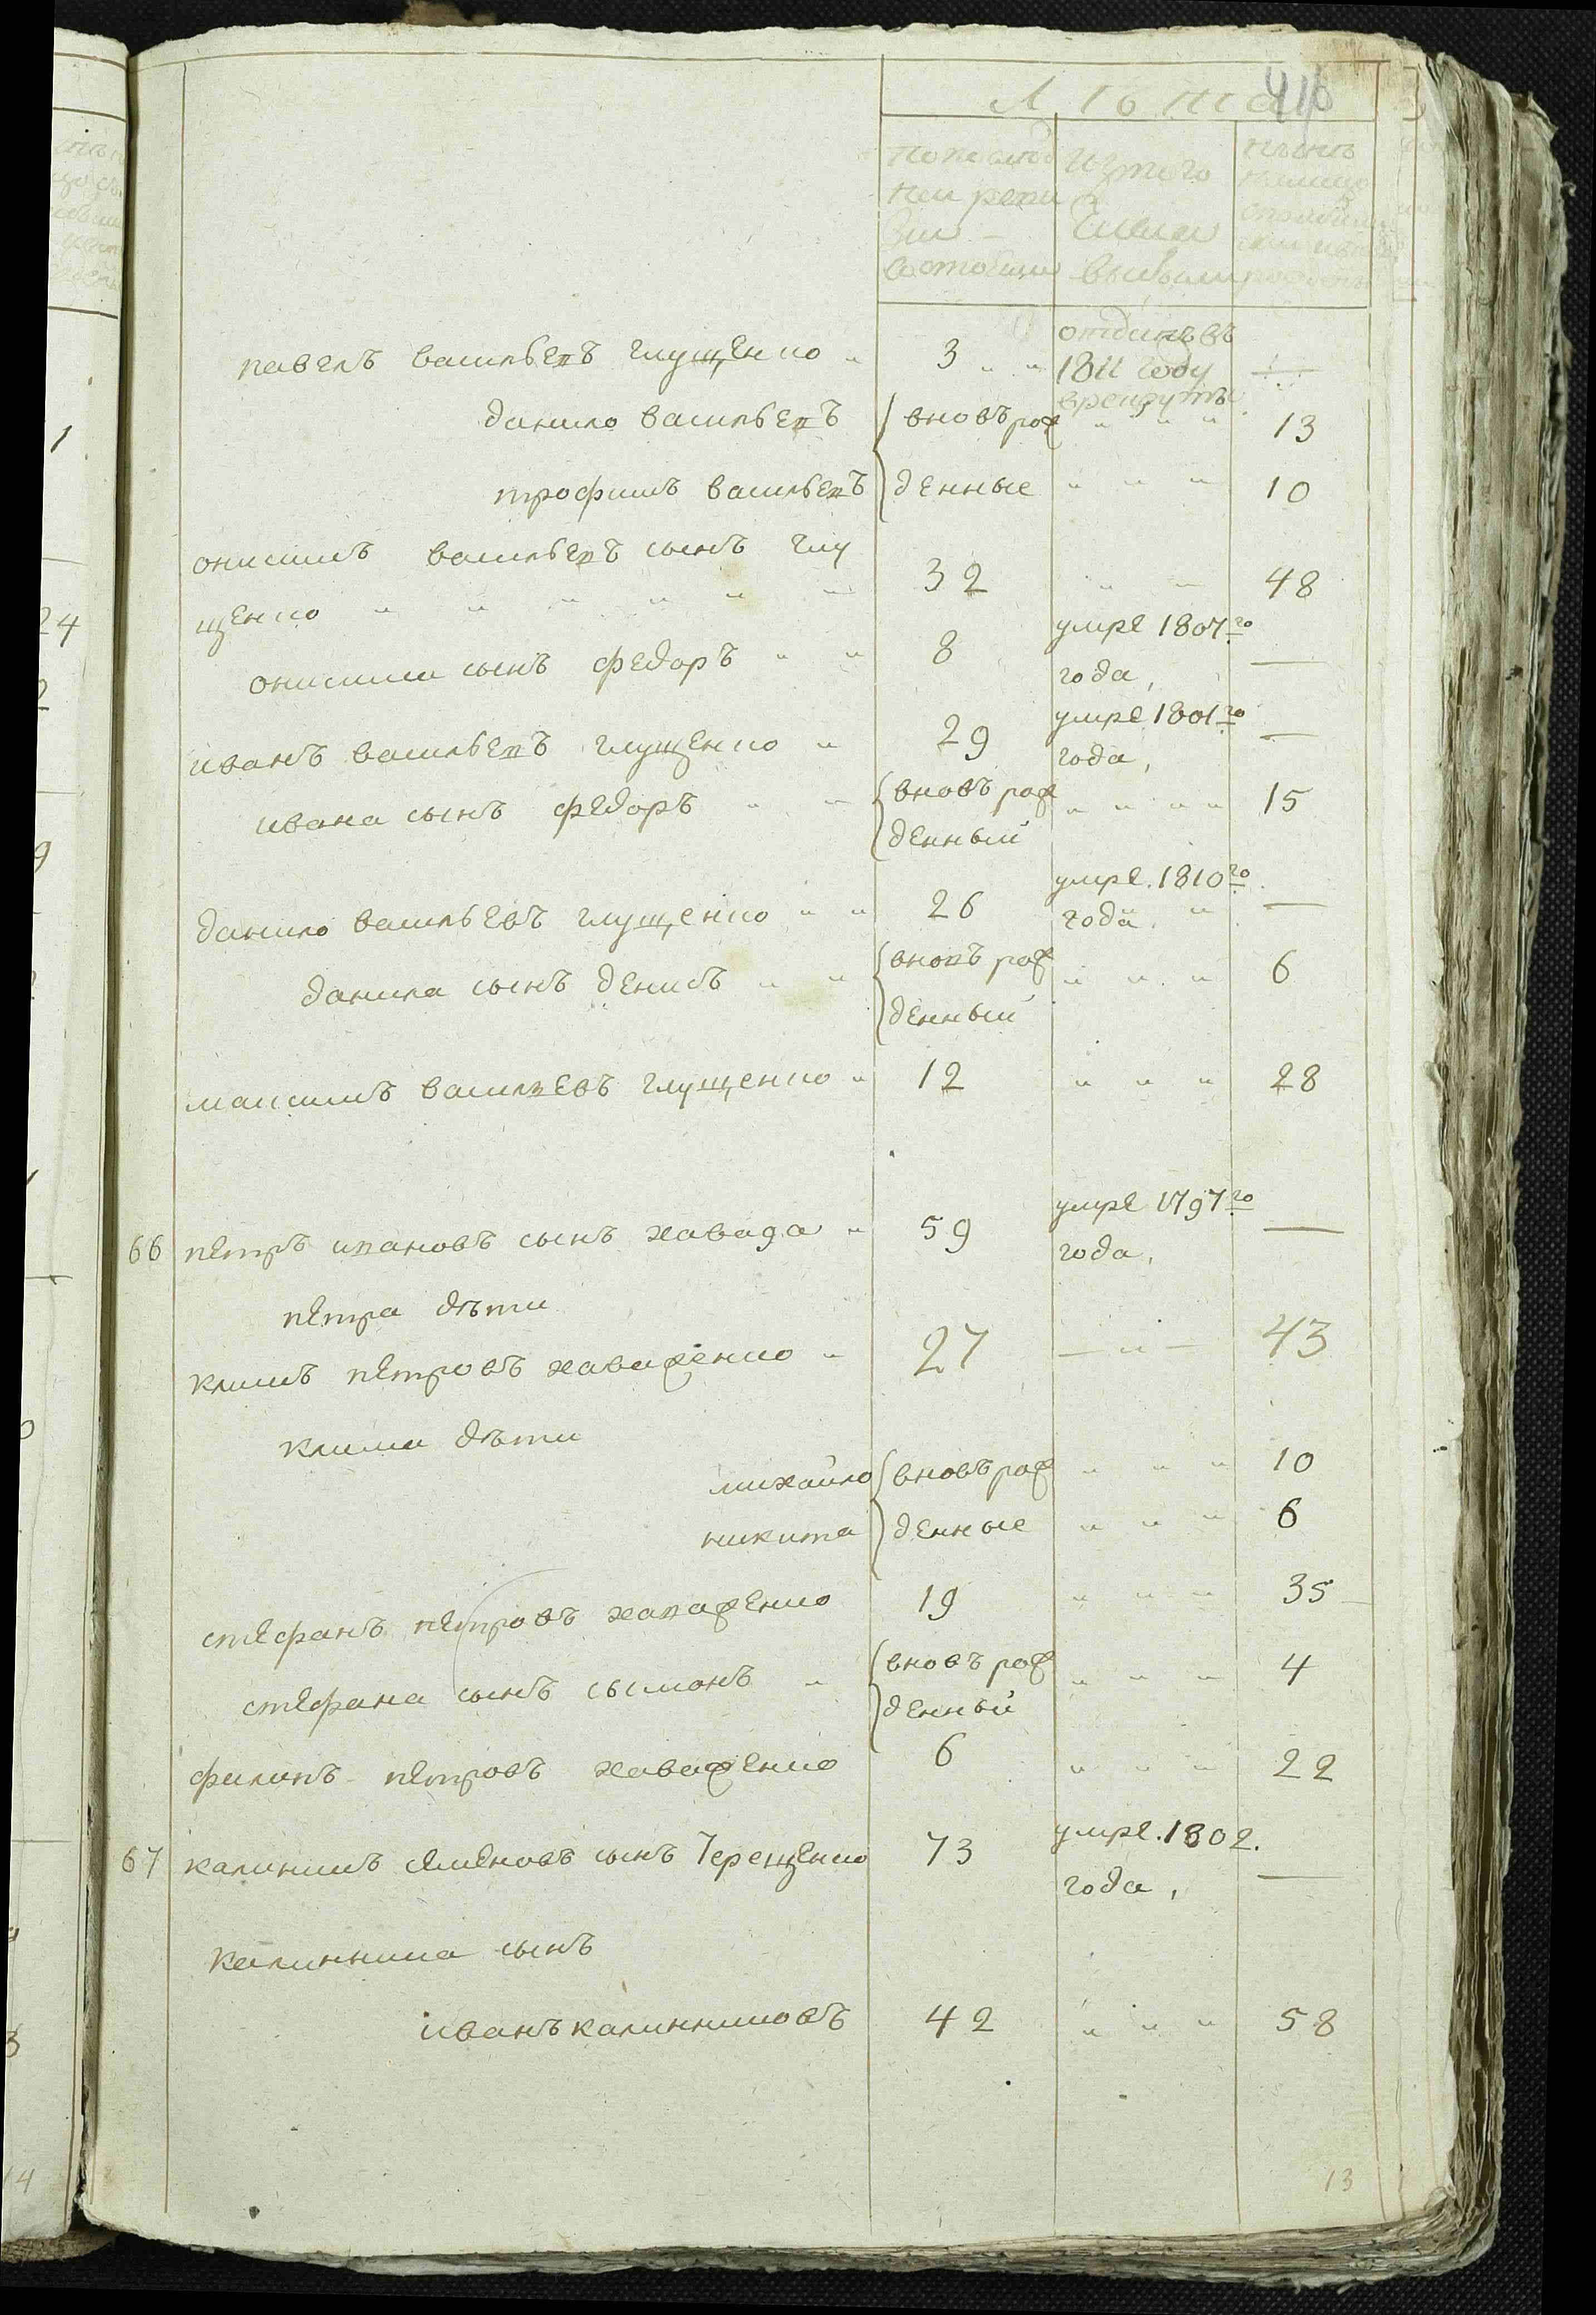 416
Лѣта
по послѣд
ней реви
зіи
состояли
изъ того
числа
выбыло
нынѣ
на лицо
павелъ васильевъ глущенко 3 отданъ въ 1811 году в рекруты —
данило васильевъ вновь рож 13
трофимъ васильевъ денные 10
онисимъ васильевъ сынъ глу
щенко 32 48
онисима сынъ федоръ 8 умре 1807го года, —
иванъ васильевъ глущенко 29 умре 1801го года, —
ивана сынъ федоръ вновь рож денный 15
данило васильевъ глущенко 26 умре. 1810го года —
данила сынъ денисъ вновь рож денный 6
максимъ васильевъ глущенко 12 28
66 петръ ивановъ сынъ жавада 59 умре 1797го года, —
петра дѣти
климъ петровъ 27 43
клима дѣти
михайло вновь рож 10
никита денные 6
стефанъ петровъ 19 35
стефана сынъ сымонъ вновь рож денный 4
филипъ петровъ 6 22
67 калиникъ семеновъ сынъ Терещенко 73 умре. 1802. года, —
калинника сынъ
иванъ калинниковъ 42 58
13